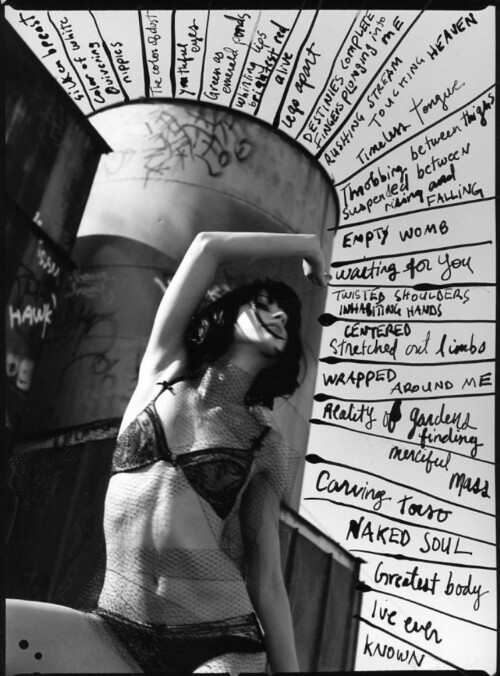 silken breast
Color of white
Quivering
nipples
The color of dist
youthful
eyes
Green as
emerald ponds
whirling lips
brightest red
alive
legs apart
DESTINIES COMPLETE
FINGERS PLUNGING into
ME
RUSHING STREAM
TOUCHING HEAVEN
Timeless tongue
Throbbing between thighs
suspended between
rising and
FALLING
EMPTY WOMB
waiting for you
TWISTED SHOULDERS
INHABITING HANDS
CENTERED
Stretched out limbs
WRAPPED
AROUND ME
Reality of gardens
finding
merciful
Mass
Carving torso
NAKED SOUL
Greatest body
I've ever
KNOWN
HAWK